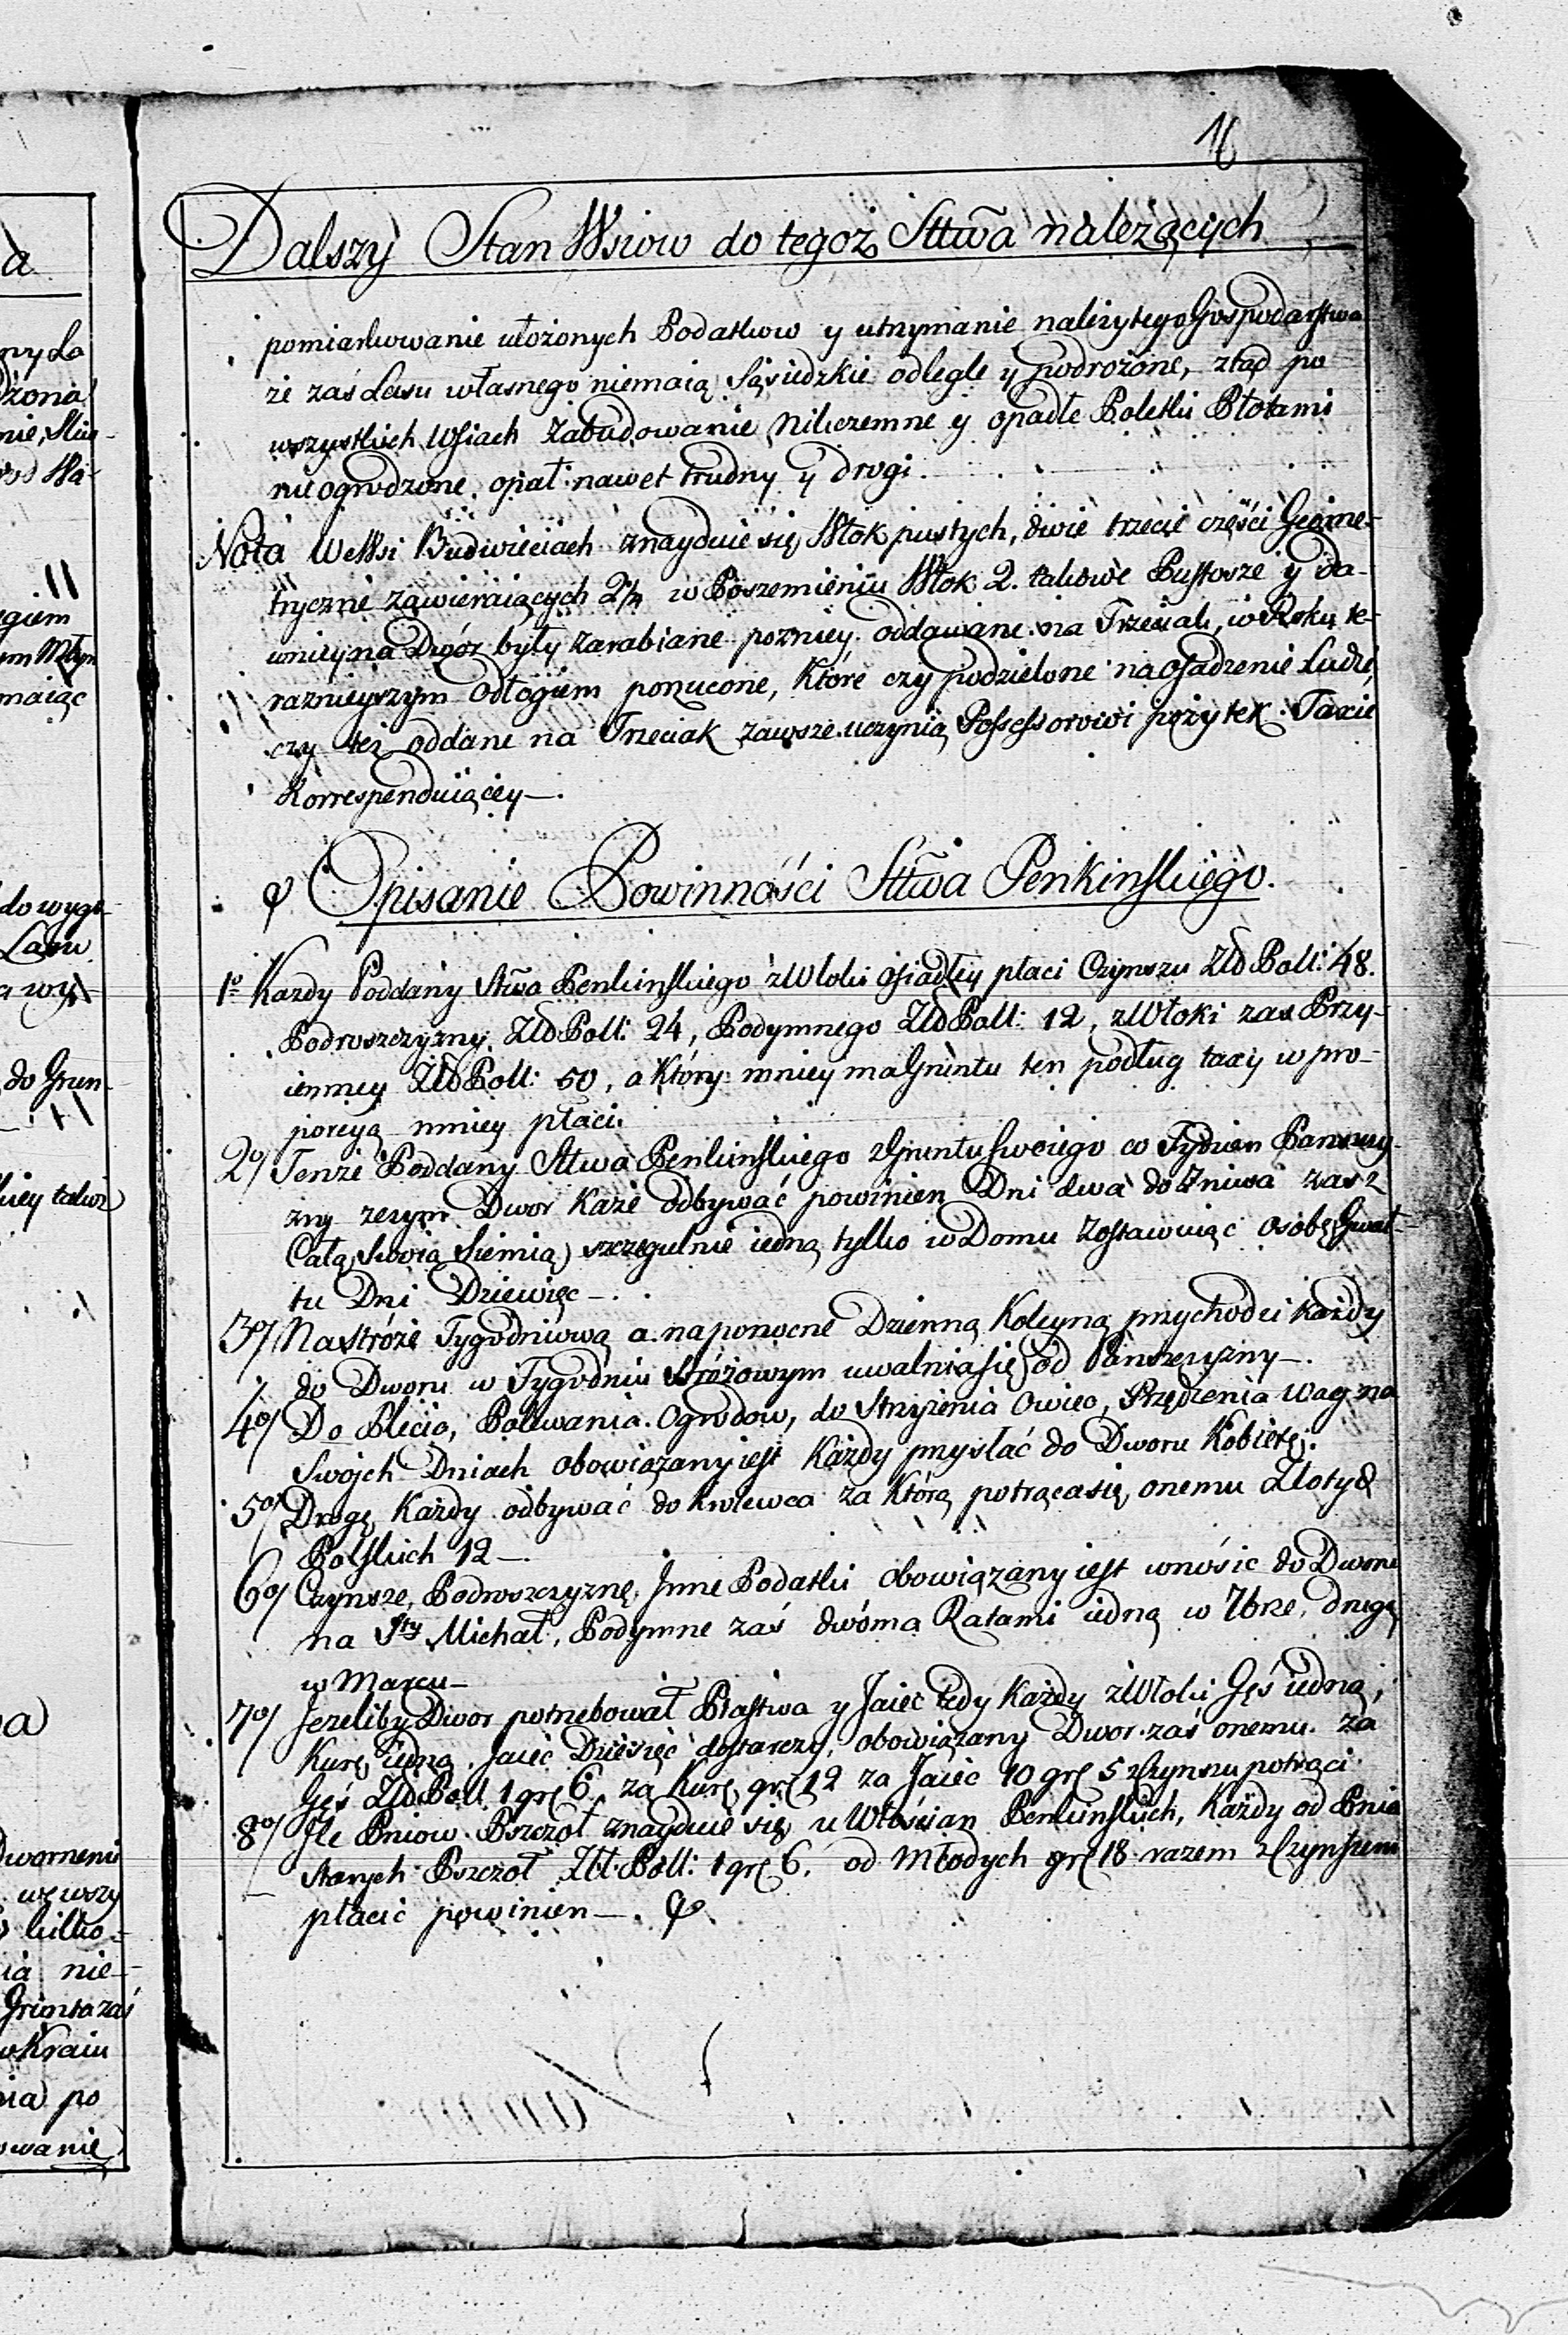 16
Dalszy Stan Wsiow do tegoż Sttwa należących
pomiarkowanie ułożonych Podatkow y utrzymanie należytego Gospodarstwa
że zaś Lasu własnego niemaią Sąsiedzkie odległe y podrożone, ztąd po
wszystkich Wsiach Zabudowanie Nikczemne y opadłe Poletki Płotami
nieogrodzone, opał nawet trudny y drogi.
Nota We Wsi Budwieciach znayduie się Włok pustych, dwie trzecie części Geome-
trycznie zawieraiących 2/3 w Poszemieniu Włok 2. takowe Pustosze y da-
wniey na Dwór były zarabiane pozniey oddawane na Trzeciak, w Roku te-
razniejszym Odłogiem porzucone, Które czy podzielone na osadzenie Ludzi,
czy też oddane na Trzeciak zawsze uczynią Possessorowi pożytek Taxie
Korrespenduiącey—.
Opisanie Powinności Sttwa Penkinskiego.
1o Kazdy Poddany Sttwa Penkinskiego z Włoki osiadłey płaci Czynszu Zld Poll: 48.
Podroszczyzny Zld Poll: 24, Podymnego Zld Poll: 12, z Włoki zas Przy-
iemney Zld Poll: 50, a Który mniey ma Gruntu ten podług taxy w pro-
porcyą mniey płaci.
2o/ Tenze Poddany Sttwa Penkinskiego z Gruntu swoiego co Tydzien Panszczy-
zny z czym Dwor Każe odbywać powinien Dni dwa do Zniwa zas z
Całą Swoią Siemią szczegulnie iedną tylko w Domu Zostawuiąc osobę Gwał-
tu Dni Dziewięc—.
3o/ Na stróże Tygodniową a na ponocne Dzienną Koleyną przychodzi Każdy
do Dworu w Tygodniu stróżowym uwalnia się od Panszczyzny—.
4o/ Do Plecia, Polewania Ogrodow, do Strzyżenia Owiec, Przędzenia Wagna
Swojch Dniach obowiązany iest Każdy przysłać do Dworu Kobietę.
5o/ Drogę Każdy odbywać do Krolewca za Którą potrąca się onemu Złotych
Polskich 12—.
6o/ Czynsze, Podroszczyznę Jnne Podatki obowiązany iest wnósic do Dworu
na Sty Michał, Podymne zaś dwóma Ratami iedną w 7brze, drugą
w Marcu—
7o/ Jezeliby Dwor potrzebował Ptastwa y Jaiec tedy Każdy z Włoki Gęś iedną,
Kurę iedną, Jaiec Dziesięć dostarczy, obowiązany Dwor zaś onemu za
Gęś Zld Poll 1 gr 6. za Kurę gr 12 za Jaiec 10 gr 5 z Czynszu potrąci
8o/ Jle Pniow Pszczoł znayduie się u Włościan Penkinskich, Każdy od Pnia
starych Pszczoł Zlt Poll: 1 gr 6. od Młodych gr 18 razem z Czynszem
płacić powinien—.